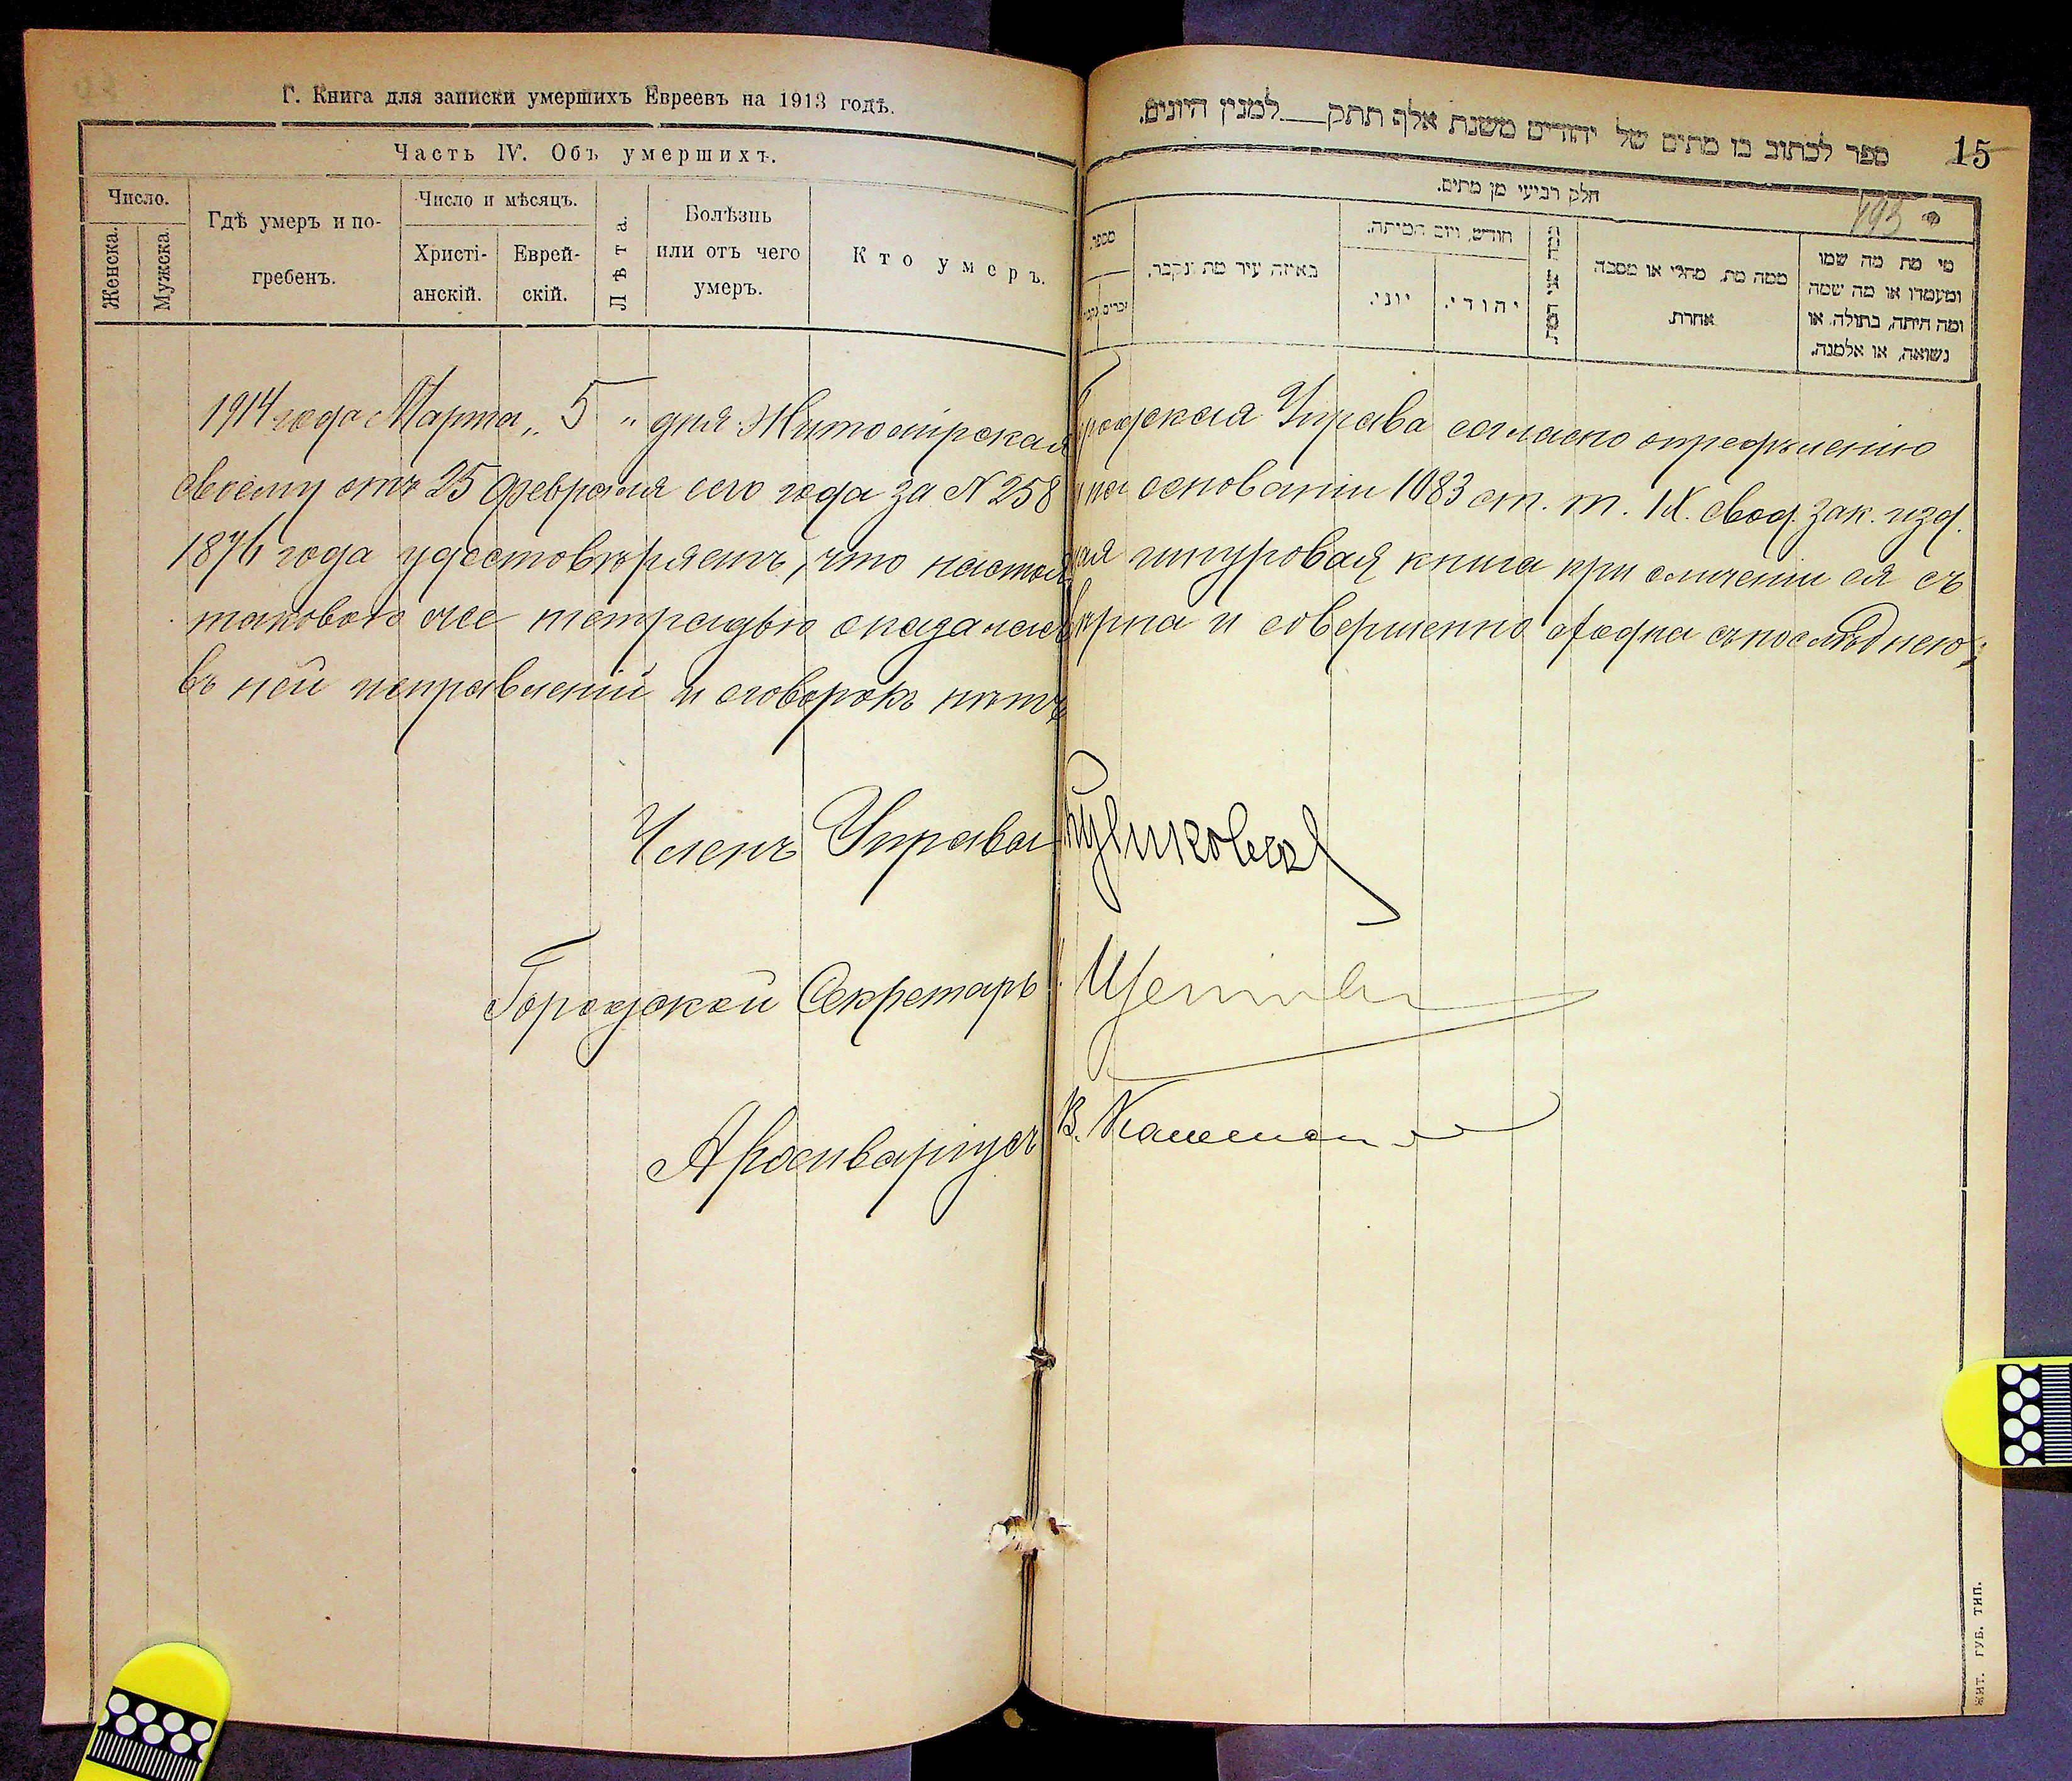 Г. Книга для записки умершихъ Евреевъ на 1913 годъ.
Часть IV. Объ умершихъ.
Число.
Женска.
Мужска.
Гдѣ умеръ и по-
гребенъ.
Число и мѣсяцъ.
Христі-
анскій.
Еврей-
скій.
Лѣта.
Болѣзнь
или отъ чего
умеръ.
Кто умеръ.
ספר לכתוב בו מתים של יהודים משנת אלף תתק___למנין היונים.
15
חלק רביעי מן מתים.
193
מספר.
באיזה עיר מת ונקבר.
חודש, ויום המיתה.
יוני.
יהודי.
ממה מת, מחלי או מסבה
אחרת.
מי מת מה שמו
ומעמדו או מה שמה
ומה היתה, בתולה, או
נשואה, או אלמנה.
1914 года Марта „5" дня Житомірская Городская Управа согласно опредѣленію
своему отъ 25 Февраля сего года за № 258 и на основаніи 1083 ст. т. IX. свод. зак. изд.
1876 года удостовѣряетъ, что настоящая шнуровая книга при сличеніи ея съ
таковою же тетрадью оказалась вѣрна и совершенно сходна съ послѣднею;
въ ней исправленій и оговорокъ нѣтъ
Членъ Управы
Городской Секретарь
Архиваріусъ В.
ЖИТ. ГУБ. ТИП.